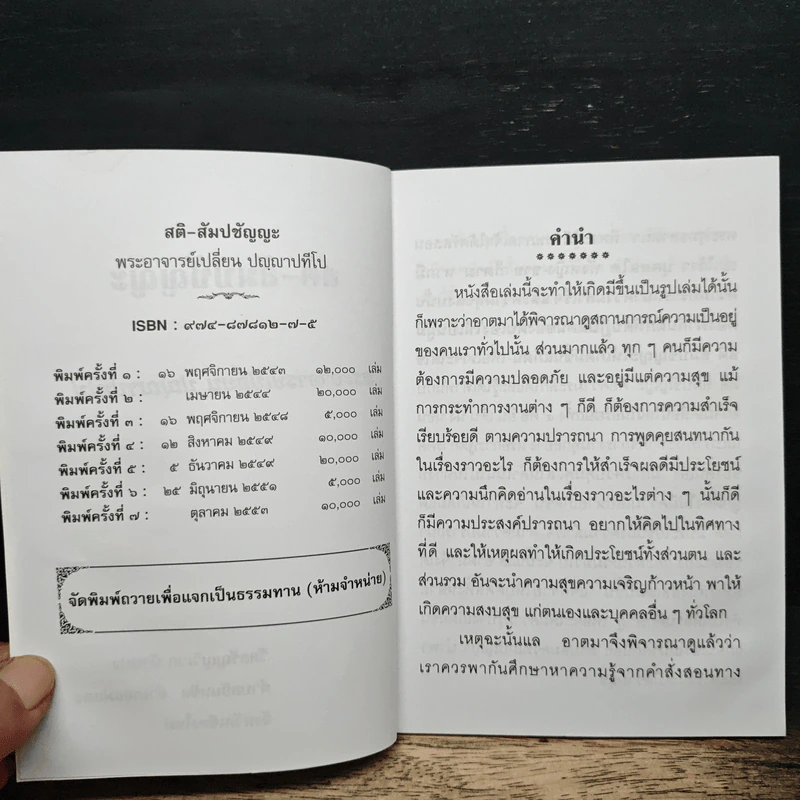 สติ-สัมปชัญญะ
พระอาจารย์เปลี่ยน ปญฺญาปทีโป
ISBN : ๙๗๔-๘๗๘๑๒-๗-๕
พิมพ์ครั้งที่ ๑ : ๑๖ พฤศจิกายน ๒๕๔๓ ๑๒,๐๐๐ เล่ม
พิมพ์ครั้งที่ ๒ : เมษายน ๒๕๔๔ ๒๐,๐๐๐ เล่ม
พิมพ์ครั้งที่ ๓ : ๑๖ พฤศจิกายน ๒๕๔๘ ๕,๐๐๐ เล่ม
พิมพ์ครั้งที่ ๔ : ๑๒ สิงหาคม ๒๕๔๙ ๑๐,๐๐๐ เล่ม
พิมพ์ครั้งที่ ๕ : ๕ ธันวาคม ๒๕๔๙ ๒๐,๐๐๐ เล่ม
พิมพ์ครั้งที่ ๖ : ๒๕ มิถุนายน ๒๕๕๑ ๕,๐๐๐ เล่ม
พิมพ์ครั้งที่ ๗ : ตุลาคม ๒๕๕๓ ๑๐,๐๐๐ เล่ม
จัดพิมพ์ถวายเพื่อแจกเป็นธรรมทาน (ห้ามจำหน่าย)
คำนำ
หนังสือเล่มนี้จะทำให้เกิดมีขึ้นเป็นรูปเล่มได้นั้น
ก็เพราะว่าอาตมาได้พิจารณาดูสถานการณ์ความเป็นอยู่
ของคนเราทั่วไปนั้น ส่วนมากแล้ว ทุก ๆ คนก็มีความ
ต้องการมีความปลอดภัย และอยู่มีแต่ความสุข แม้
การกระทำการงานต่าง ๆ ก็ดี ก็ต้องการความสำเร็จ
เรียบร้อยดี ตามความปรารถนา การพูดคุยสนทนากัน
ในเรื่องราวอะไร ก็ต้องการให้สำเร็จผลดีมีประโยชน์
และความนึกคิดอ่านในเรื่องราวอะไรต่าง ๆ นั้นก็ดี
ก็มีความประสงค์ปรารถนา อยากให้คิดไปในทิศทาง
ที่ดี และให้เหตุผลทำให้เกิดประโยชน์ทั้งส่วนตน และ
ส่วนรวม อันจะนำความสุขความเจริญก้าวหน้า พาให้
เกิดความสงบสุข แก่ตนเองและบุคคลอื่น ๆ ทั่วโลก
เหตุฉะนั้นแล อาตมาจึงพิจารณาดูแล้วว่า
เราควรพากันศึกษาหาความรู้จากคำสั่งสอนทาง